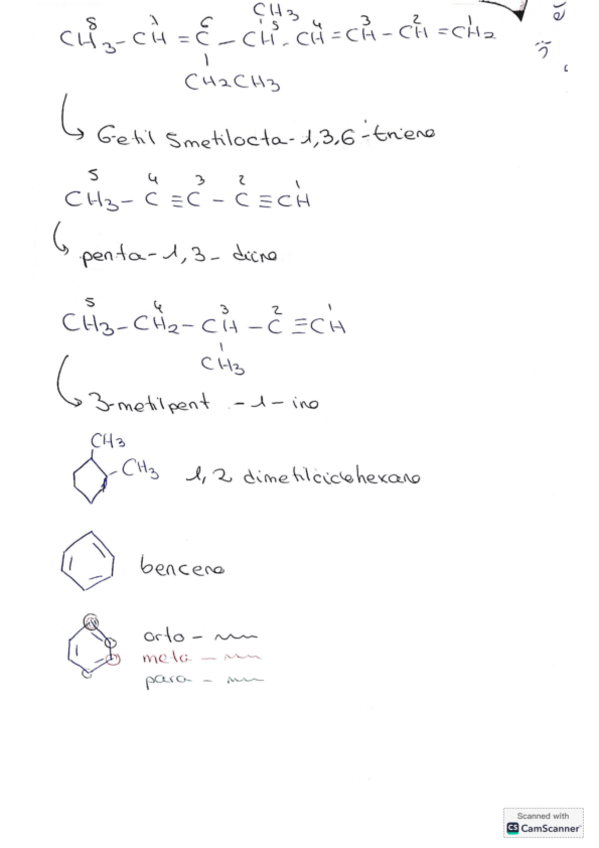 CH3
8 7 6 5 4 3 2 1
CH3 - CH = C - CH - CH = CH - CH = CH2
CH2CH3
6-etil 5metilocta-1,3,6-trieno
5 4 3 2 1
CH3 - C ≡ C - C ≡ CH
penta-1,3-diino
5 4 3 2 1
CH3 - CH2 - CH - C ≡ CH
CH3
3-metilpent -1-ino
CH3
CH3 1,2 dimetilciclohexano
benceno
orto -
meta -
para -
Scanned with
CS CamScanner